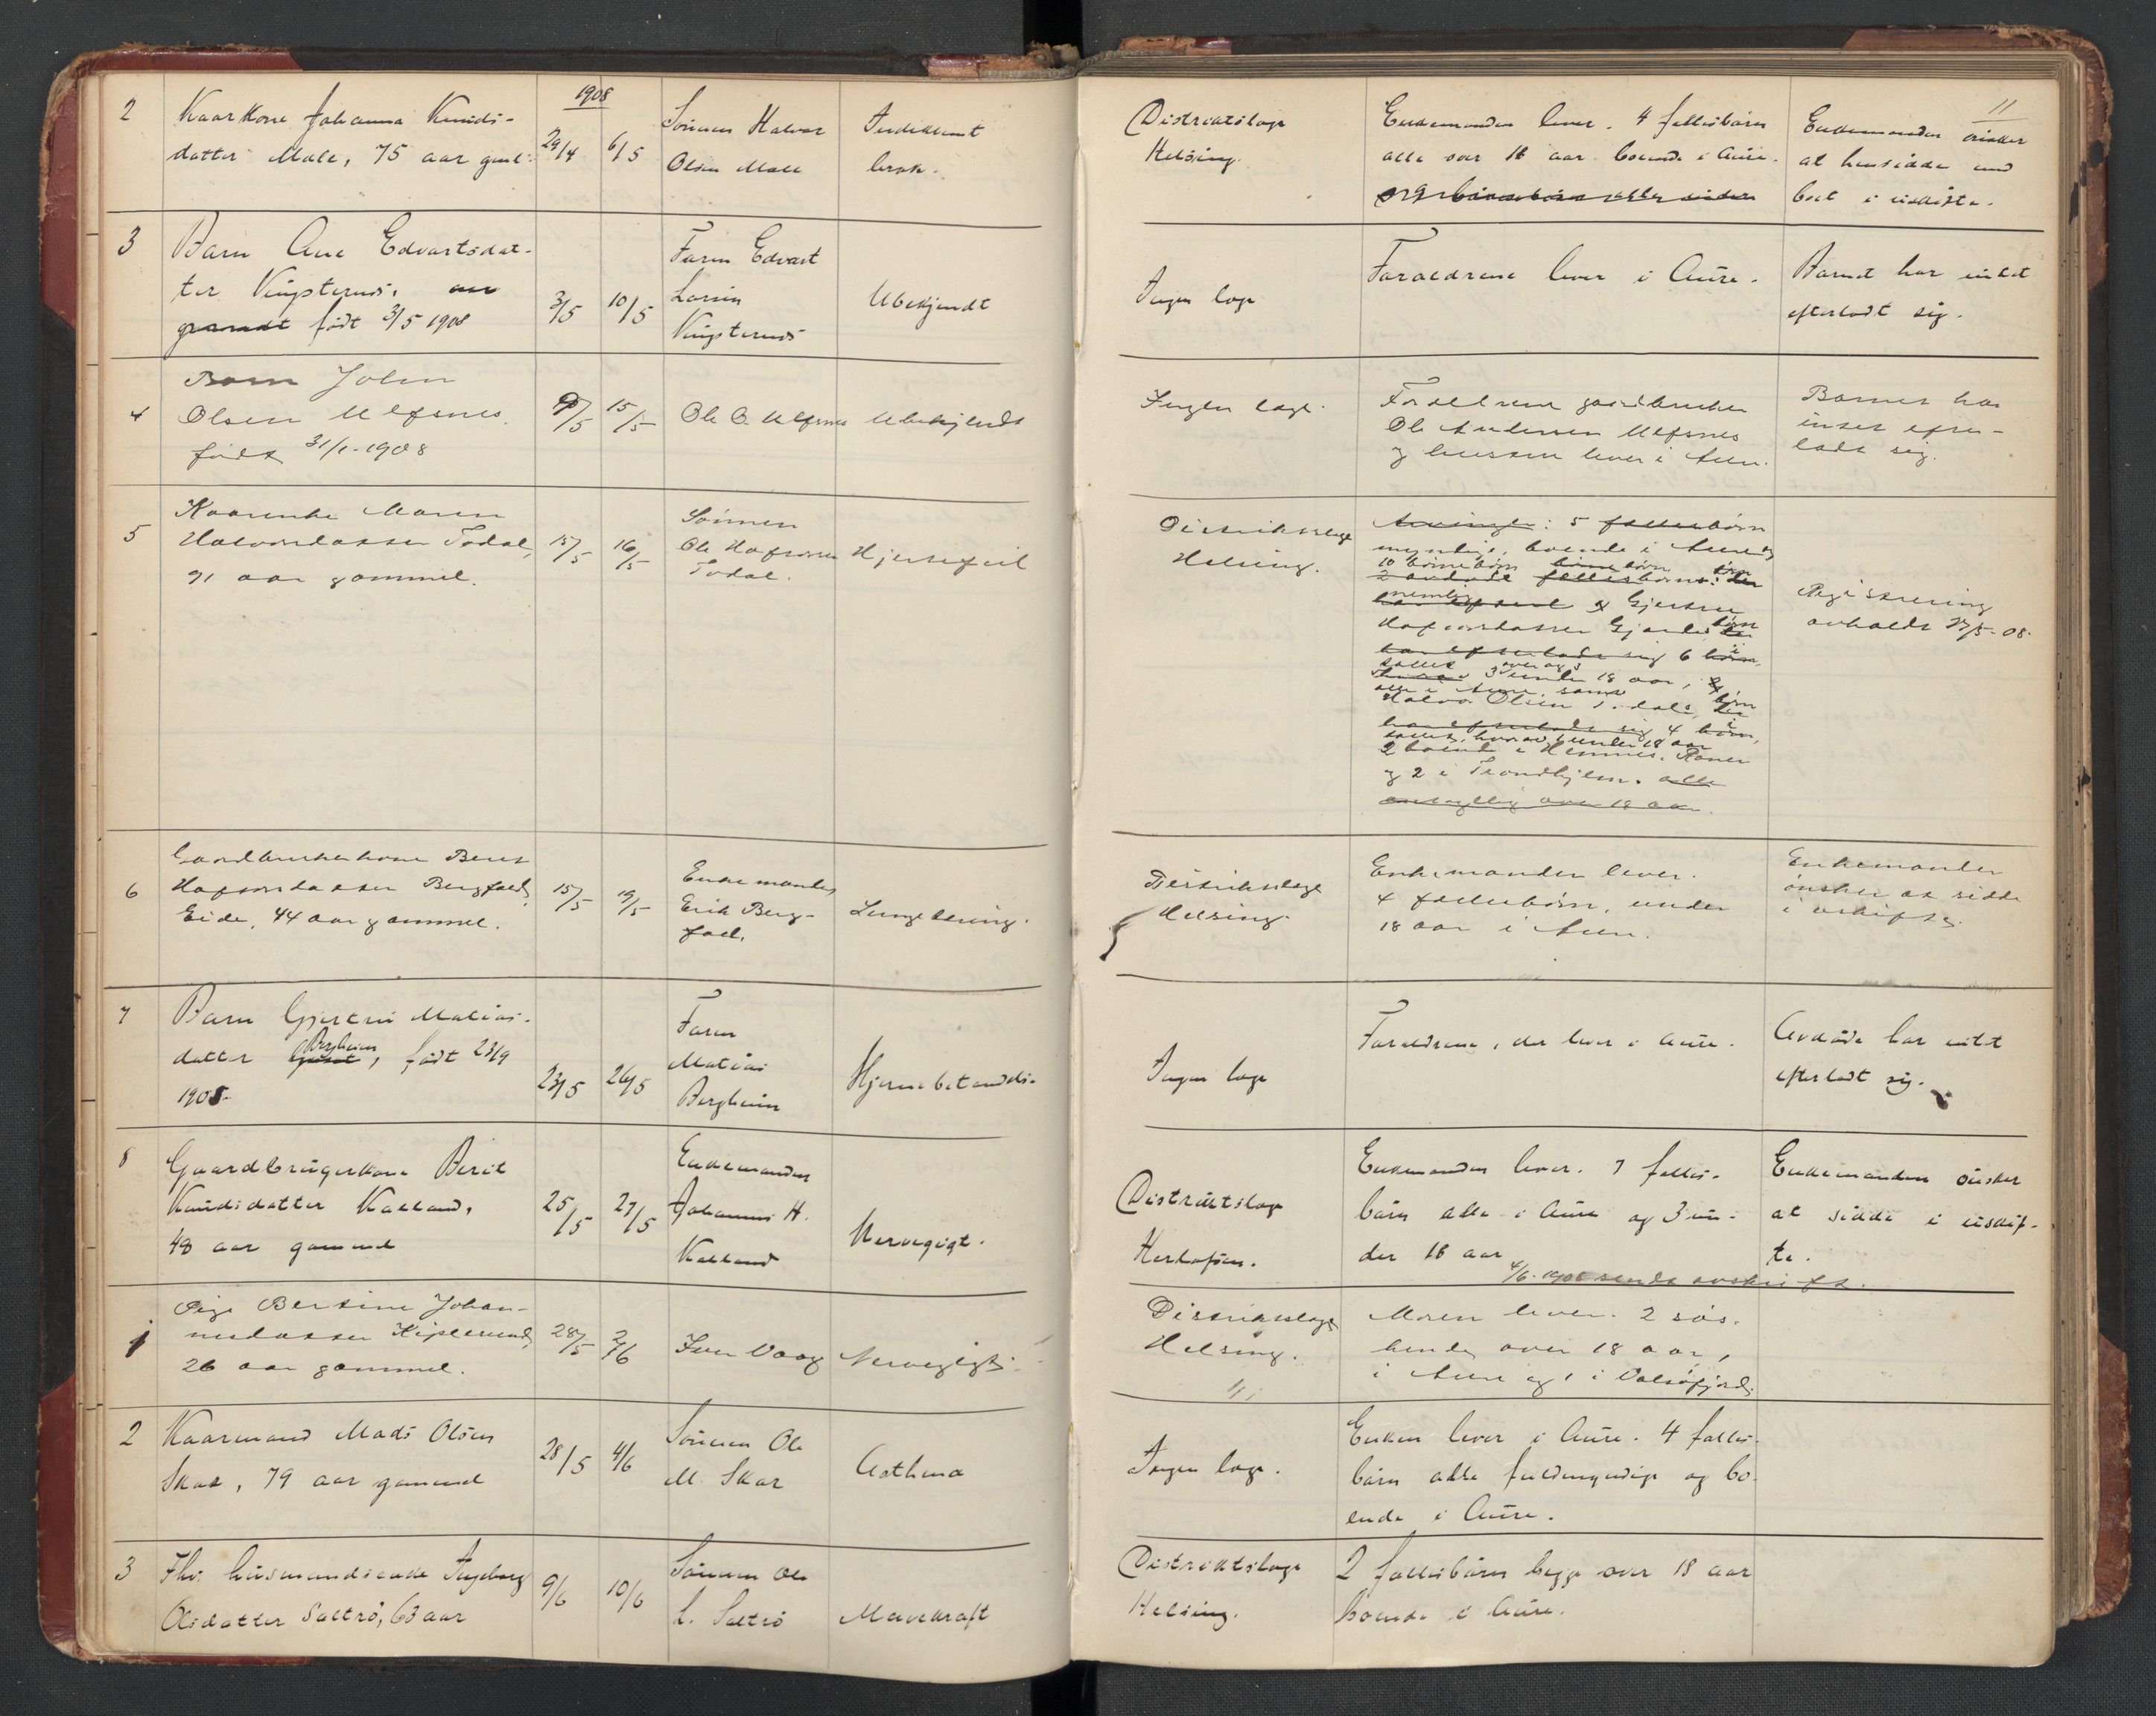 1908
2
Kaarkone Johanna Knuds-
datter Male, 75 aar gml.
29/4
6/5
Sönnen Halvor
Olsen Male
brok.
Distriktslæge
Helsing.
Enkemanden lever. 4 fellesbörn
alle over 18 aar boende i Aure.
11
Enkemanden önsker
at hensidde med
boet i uskifte.
3
Barn Ane Edvartsdat-
ter
født 3/5 1908
3/5
10/5
Faren Edvart
Larsen
Ubekjendt
Ingen læge
Foræeldrene lever i Aure.
Barnet har intet
efterladt sig.
4
Barn John
Olsen Ulfsnes.
født 31/1-1908
9/5
15/5
Ole O. Ulfsnes
Ubekjendt
Ingen læge.
Forældrene gaardbruker
Ole Andersen Ulfsnes
og hustru lever i Aure.
Barnet har
intet efter-
ladt sig.
5
Kaarenke Maren
Halvorsdatter Todal,
91 aar gammel.
15/5
16/5
Sönnen
Ole Hafsorsen
Todal.
Hjertefeil
Distriktslæge
Helsing.
Arvinger: 5 fellesbörn
myndige, boende i Aure og
10 börnebörn
nemlig Gjertru
Hafsorsdatter Gjerdes börn
har efterladt sig 6 börn,
3 under 18 aar,
alle i Aure, samt
Halvor Olsen Todals börn
har efterladt sig 4 börn,
hvorav 1 under 18 aar
2 boende i Hemnes, Ranen
og 2 i Trondhjem. alle
over 18 aar.
Registrering
avholdt 27/5-08.
6
Gaardbrukerkone Beret
Hafsorsdatter Bergfald,
Eide, 44 aar gammel.
15/5
19/5
Enkemanden
Erik Berg-
fald.
Lungetæring.
Distriktslæge
Helsing.
Enkemanden lever.
4 fellesbörn, under
18 aar i Aure.
Enkemanden
önsker at sidde
i uskifte.
7
Barn Gjertru Matias-
datter Bergheim, født 23/9
1905.
23/5
26/5
Faren
Matias
Bergheim
Hjernebetændelse
Ingen læge
Forældrene, der lever i Aure.
Avdöde har intet
efterladt sig.
8
Gaardbrugerkone Berit
Knudsdatter Kalland,
48 aar gammel
25/5
27/5
Enkemanden
Johannes H.
Kalland
Nervegigt.
Distriktslæge
Herlofsen.
Enkemanden lever. 7 felles-
börn alle i Aure og 3 un-
der 18 aar
4/6-1908 sendt avskrift.
Enkemanden önsker
at sidde i uskif-
te.
1
Pige Bertine Johan-
nesdatter Kiplesund,
26 aar gammel.
28/5
2/6
Iver Vaag
Nervegigt.
Distriktslæge
Helsing.
Moren lever. 2 søs-
kende over 18 aar,
i Aure og 1 i Valsøfjord.
2
Kaarmand Mads Olsen
Skar, 79 aar gammel
28/5
4/6
Sönnen Ole
M. Skar
Asthma
Ingen læge.
Enken lever i Aure. 4 felles-
börn alle fuldmyndige og bo-
ende i Aure.
3
Fhv. husmandsenke Ingeborg
Olsdatter Saltrö, 63 aar
9/6
10/6
Sönnen Ole
L. Saltrö
Mavekræft
Distriktslæge
Helsing.
2 fellesbörn begge over 18 aar
boende i Aure.